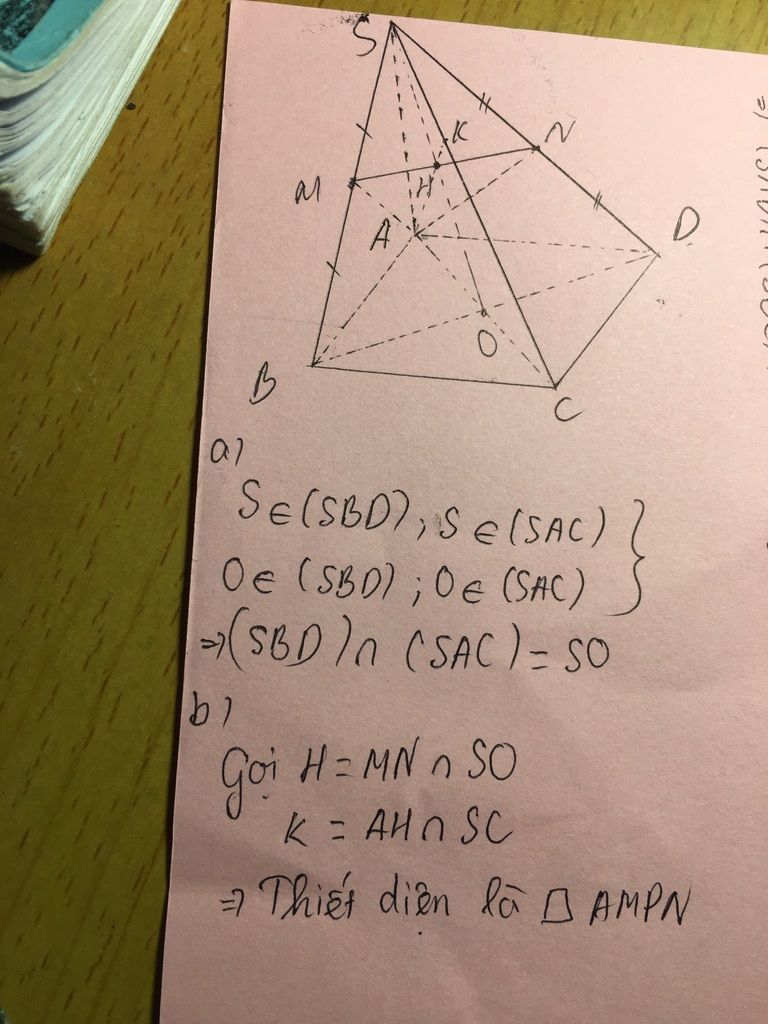 S
K
N
M
H
A
D
O
B
C
a)
S ∈ (SBD) ; S ∈ (SAC) }
O ∈ (SBD) ; O ∈ (SAC)
⇒ (SBD) ∩ (SAC) = SO
b)
Gọi H = MN ∩ SO
K = AH ∩ SC
⇒ Thiết diện là □ AMPN